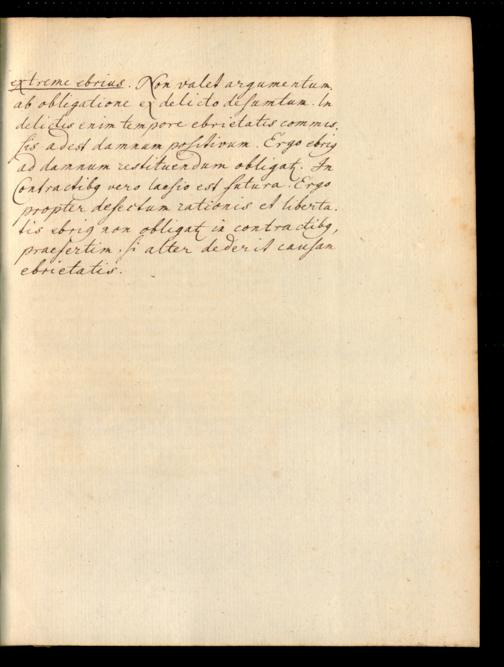 extreme ebrius. Non valet argumentum
ab obligatione ex delicto desumtum. In
delictis enim tempore ebrietatis commis,
sis adest damnum positivum. Ergo ebrig
ad damnum restituendum obligaţ. In
Contractibg vero laesio est futura. Ergo
propter defectum rationis et liberta,
tis ebrig non obligaţ in contractibg,
praesertim, si alter dederit causan
ebrietatis.